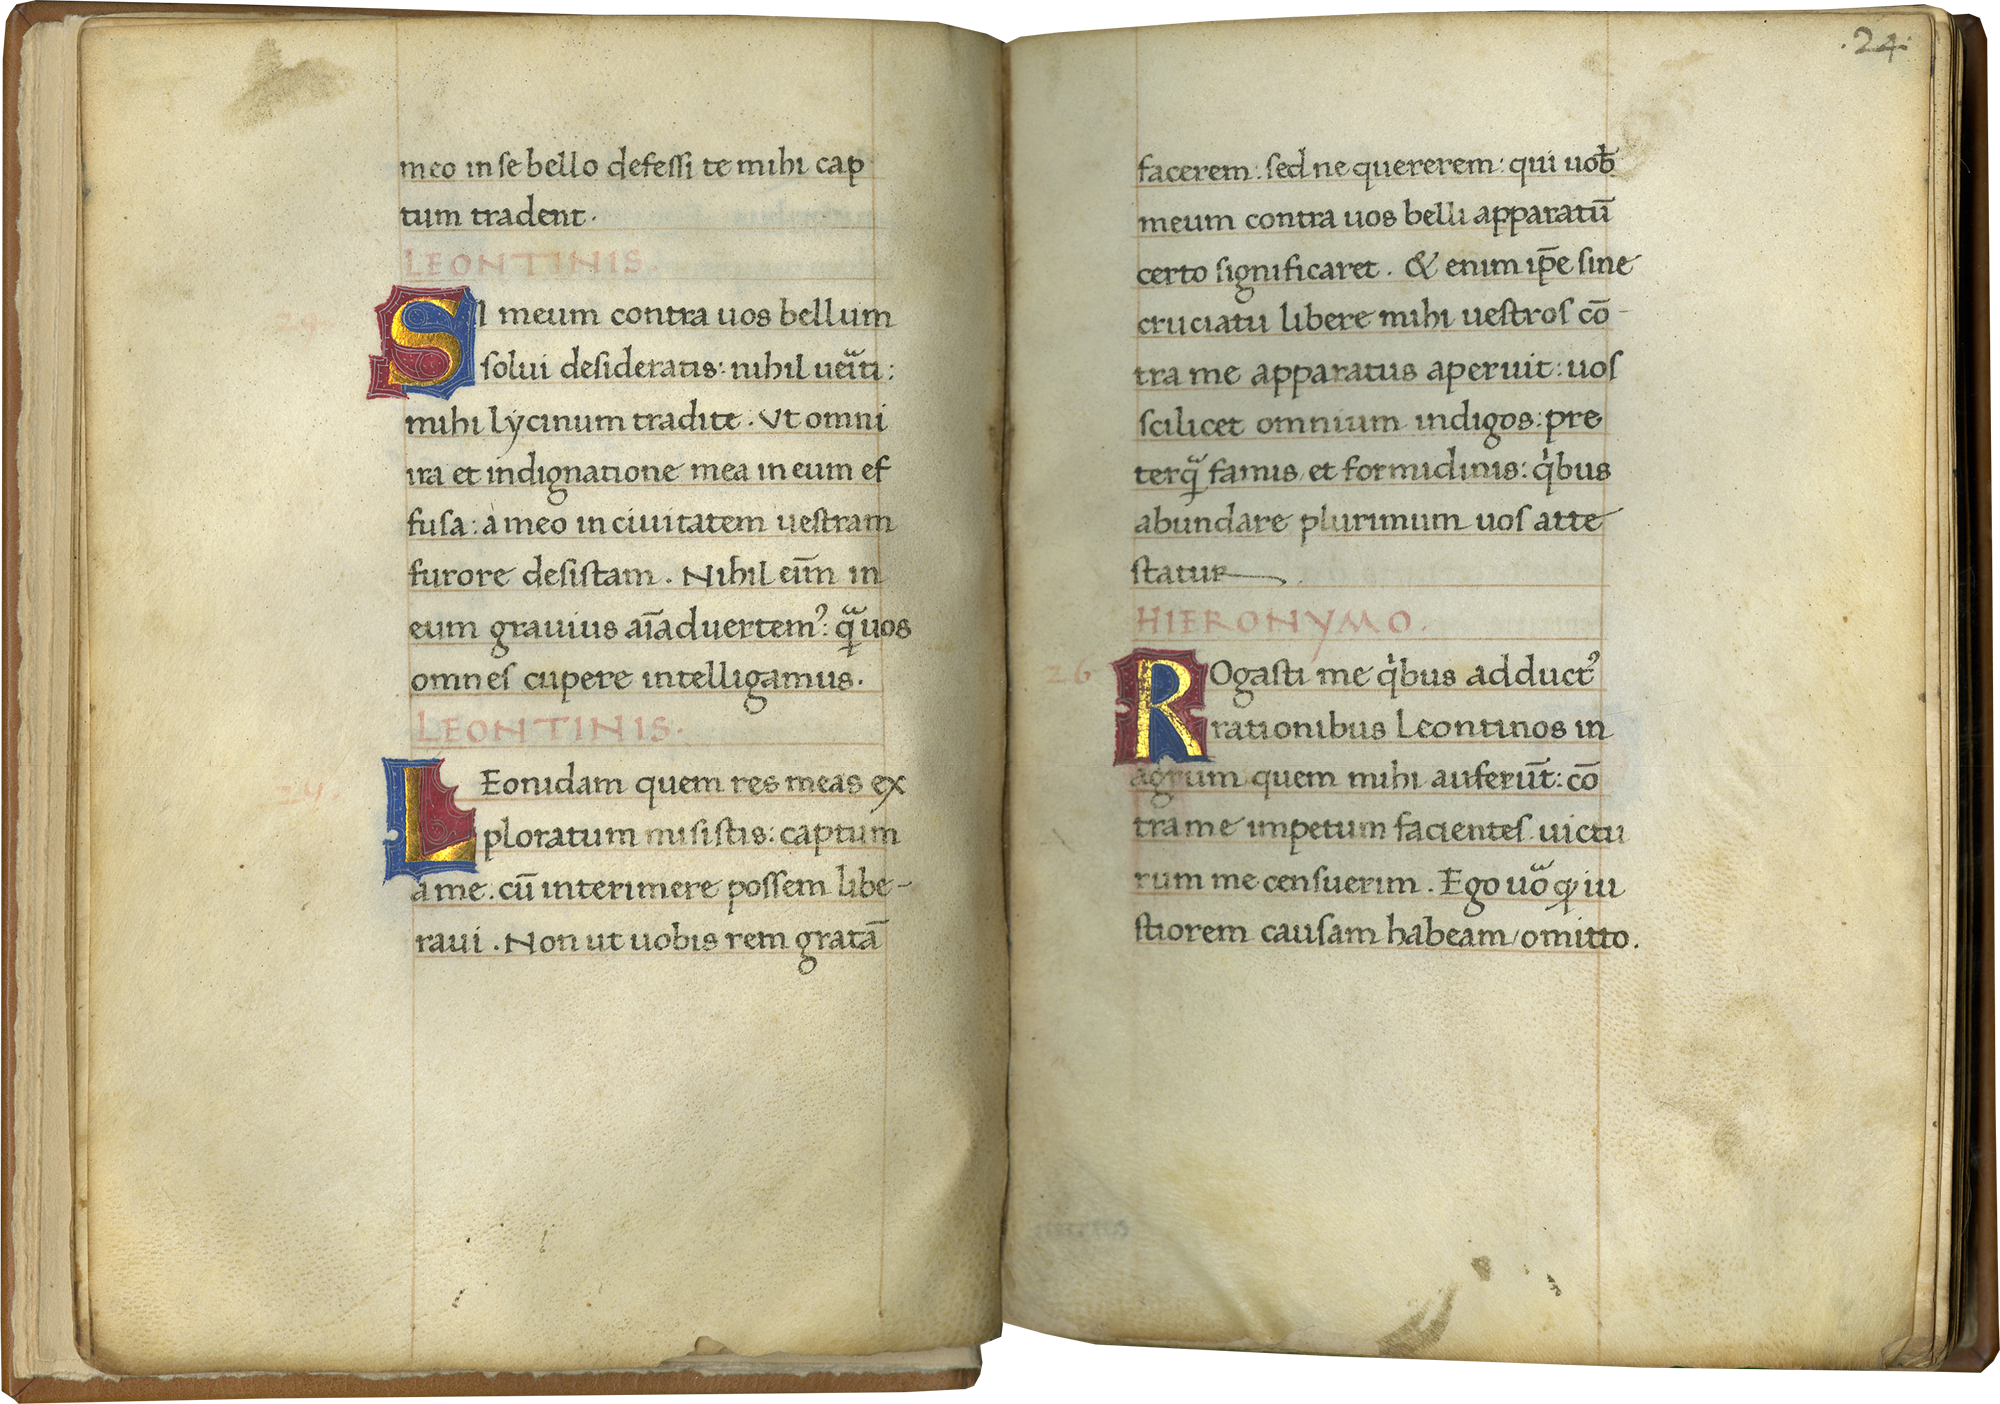 meo in se bello defessi te mihi cap
tum tradent.
LEONTINIS.
SI meum contra uos bellum
solui desideratis: nihil
mihi lycinum tradite. Vt omni
ira et indignatione mea in eum ef
fusa: a meo in ciuitatem uestram
furore desistam. Nihil eim̅ in
eum grauius
omnes cupere intelligamus.
LEONTINIS.
LEonidam quem res meas ex
ploratum misistis: captum
a me. cu̅ interimere possem libe-
raui. Non ut uobis rem grata̅
.24.
facerem: sed ne quererem: qui uob̅
meum contra uos belli apparatu̅
certo significaret. & enim ip̅e sine
cruciatu libere mihi uestros co̅-
tra me apparatus aperuit: uos
scilicet omnium indigos: pre
terq̃ famis et formidinis: qⁱbus
abundare plurimum uos atte
statur
HIERONYMO.
26
ROgasti me qⁱbus adductꝰ
rationibus Leontinos in
agrum quem mihi auferu̅t: co̅
tra me impetum facientes uictu
rum me censuerim. Ego uoᷓ ꝙ iu
stiorem causam habeam/omitto.